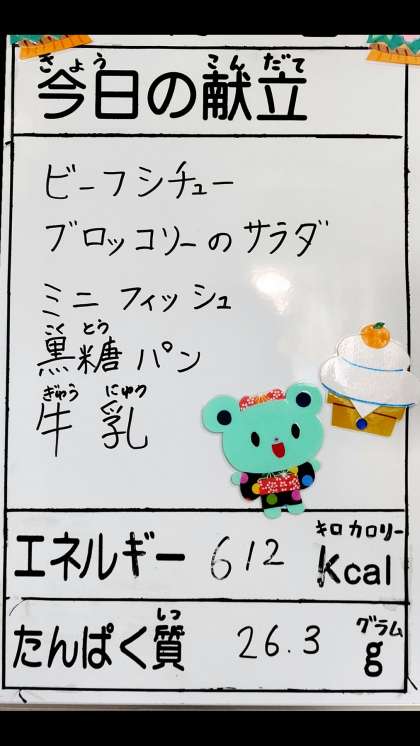 きょう こんだて
今日の献立
ビーフシチュー
ブロッコリーのサラダ
ミニフィッシュ
こくとう
黒糖パン
ぎゅうにゅう
牛乳
キロカロリー
エネルギー 612 Kcal
しつ グラム
たんぱく質 26.3 g